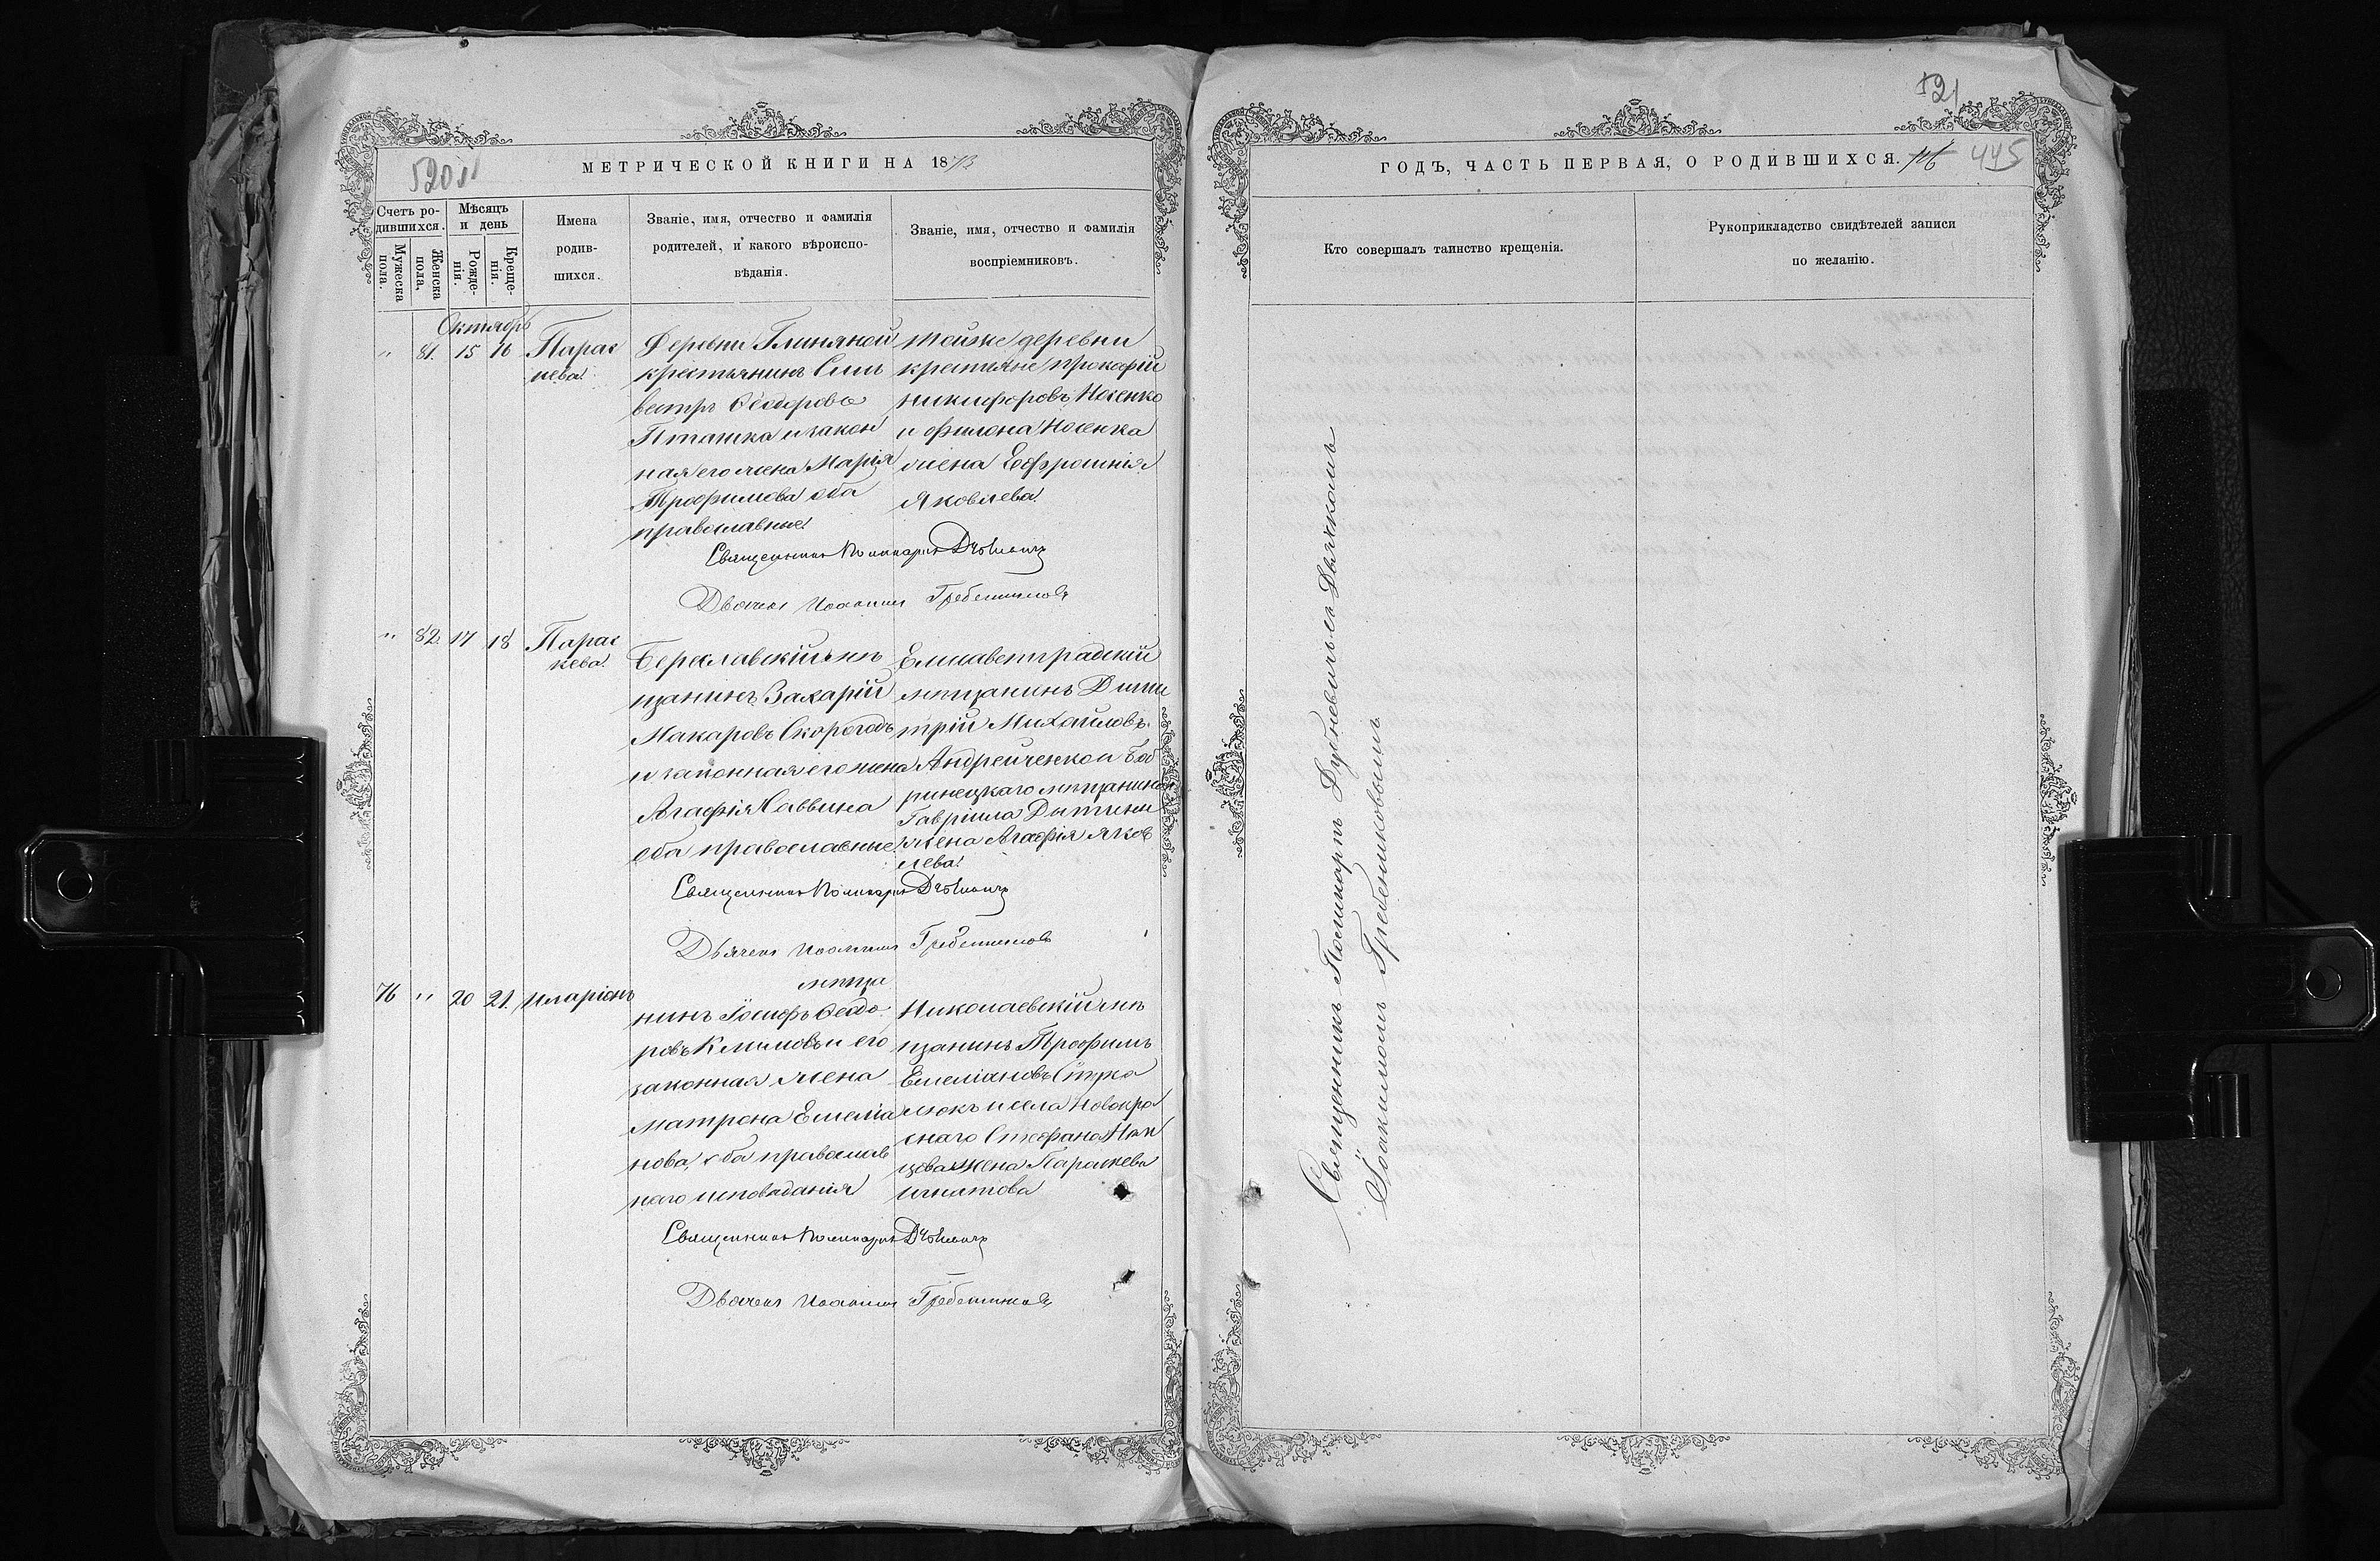 520
МЕТРИЧЕСКОЙ КНИГИ НА 1873
Счетъ ро-
дившихся.
Мужеска
пола.
Женска
пола.
Мѣсяцъ
и день
Рожде-
нія.
Креще-
нія.
Имена
родив-
шихся.
Званіе, имя, отчество и фамилія
родителей, и какого вѣроиспо-
вѣданія.
Званіе, имя, отчество и фамилія
воспріемниковъ.
Октябрь
" 81. 15 16 Парас
кева
Деревни Глиняной
крестьянинъ Сель
вестръ Ѳеодоровъ
Пташка и закон
ная его жена Марія
Трофимова оба
православные
тойже деревни
крестьяне Прокофій
Никифоровъ Носенко
и Филона Носенка
жена Ефросинія
Яковлева
Священникъ Поликарпъ
Дьячекъ Иоакимъ Гребенниковъ
" 82. 17 18 Парас
кева
Береславскій мѣ
щанинъ Захарій
Макаровъ Скороходъ
и законная его жена
Агафія Саввина
оба православные
Елисаветградскій
мѣщанинъ Дими
трій Михайловъ
Андрейченко и Боб
ринецкаго мѣщанина
Гавріила
жена Агафія Яков
лева
Священникъ Поликарпъ
Дьячекъ Иоакимъ Гребенниковъ
76 " 20 21. Иларіонъ
мѣща
нинъ Іосифъ Ѳеодо
ровъ Климовъ и его
законная жена
Матрона Емеліа
нова, оба православ
наго исповѣданія
Николаевскій мѣ
щанинъ Трофимъ
Емеліановъ
и села Новокра
снаго Стефана
жена Параскева
Игнатова
Священникъ Поликарпъ
Дьячекъ Иоакимъ Гребенниковъ
521
ГОДЪ, ЧАСТЬ ПЕРВАЯ, О РОДИВШИХСЯ. 445
Кто совершалъ таинство крещенія.
Рукоприкладство свидѣтелей записи
по желанію.
Священникъ Поликарпъ Дубневичъ съ Дьячкомъ
Іоакимомъ Гребенниковымъ